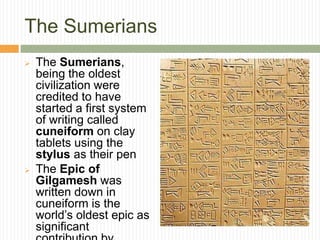 The Sumerians
The Sumerians,
being the oldest
civilization were
credited to have
started a first system
of writing called
cuneiform on clay
tablets using the
stylus as their pen
The Epic of
Gilgamesh was
written down in
cuneiform is the
world's oldest epic as
significant
contribution by